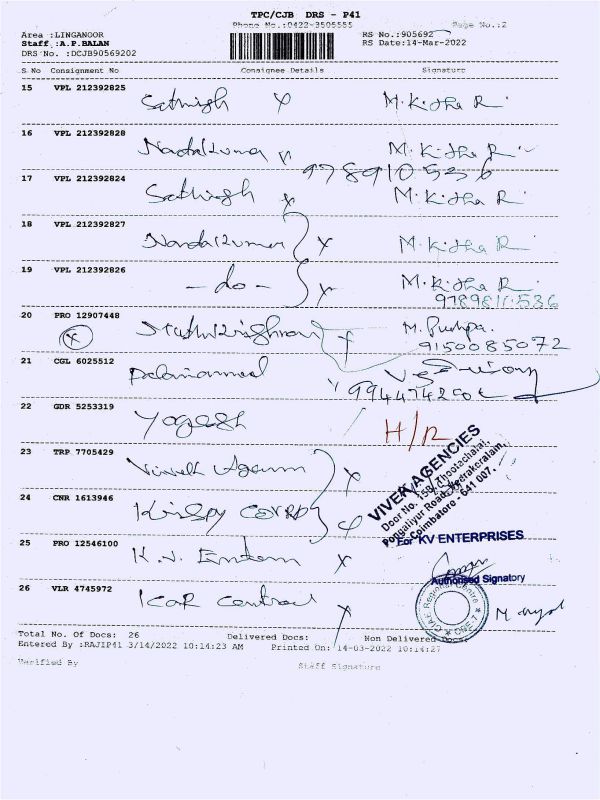 TPC/CJB DRS - P41
Phone No.:0422-3505555
Page No.:2
Area :LINGANOOR
RS No.:905692
Staff :A.P.BALAN
RS Date:14-Mar-2022
DRS No. :DCJB90569202
S No Consignment No Consignee Details Signature
15 VPL 212392825 Sathish M. Kitha R.
16 VPL 212392828 M. Kitha R.
17 VPL 212392824 Sathish M. Kitha R.
18 VPL 212392827 M. Kitha R.
19 VPL 212392826 - do - M. Kitha R.
9789811536
20 PRO 12907448 M. Pushpa.
9150085072
21 CGL 6025512
22 GDR 5253319 Yogesh H/R
23 TRP 7705429
24 CNR 1613946 Krispy
25 PRO 12546100 K.V.
26 VLR 4745972
VIVEK AGENCIES
Door No. 15B, Thootachalai,
Pongaliyur Road, Vedrakeralam,
Coimbatore - 641 007.
For KV ENTERPRISES
Authorised Signatory
Regional Centre
CBE-7
Total No. Of Docs: 26 Delivered Docs: Non Delivered Docs:
Entered By :RAJIP41 3/14/2022 10:14:23 AM Printed On: 14-03-2022 10:14:27
Verified By Staff Signature